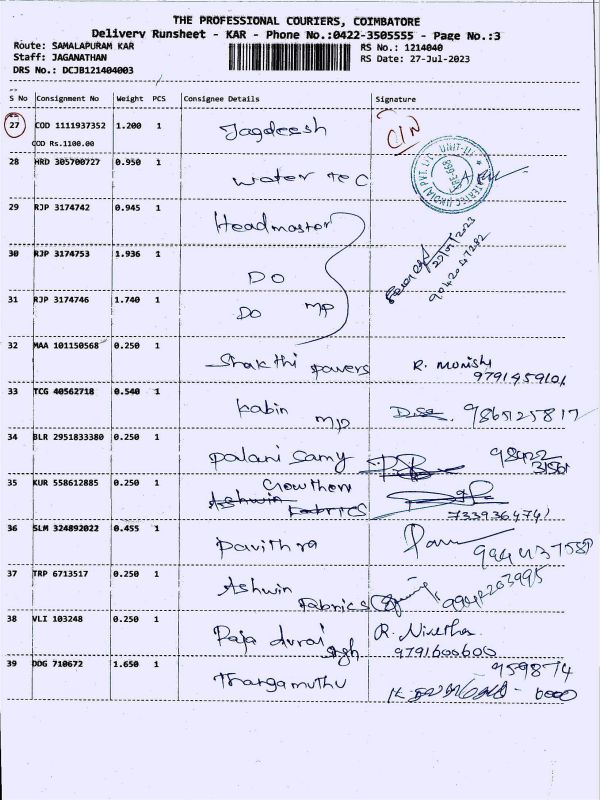 THE PROFESSIONAL COURIERS, COIMBATORE
Delivery Runsheet - KAR - Phone No.:0422-3505555 - Page No.:3
Route: SAMALAPURAM KAR
RS No.: 1214040
Staff: JAGANATHAN
RS Date: 27-Jul-2023
DRS No.: DCJB121404003
S No Consignment No Weight PCS Consignee Details Signature
27 COD 1111937352 1.200 1 Jagdeesh C/N
COD Rs.1100.00
28 HRD 305700727 0.950 1 water tec
UNIT-II
29 RJP 3174742 0.945 1 Headmaster
30 RJP 3174753 1.936 1 DO
31 RJP 3174746 1.740 1 DO MP
32 MAA 101150568 0.250 1 Shakthi powers R. Monish
9791459101
33 TCG 40562718 0.540 1 Kabin MP 9865125817
34 BLR 2951833380 0.250 1 Palani Samy 98422
35 KUR 558612885 0.250 1 Growthen
Ashwin Fabrics
7339364741
36 SLM 324892022 0.455 1 Pavithra
37 TRP 6713517 0.250 1 Ashwin Fabrics 9942203995
38 VLI 103248 0.250 1 Raja durai R. Nivetha
9791600600
39 DDG 710672 1.650 1 Thangamuthu 9598874
- 6000